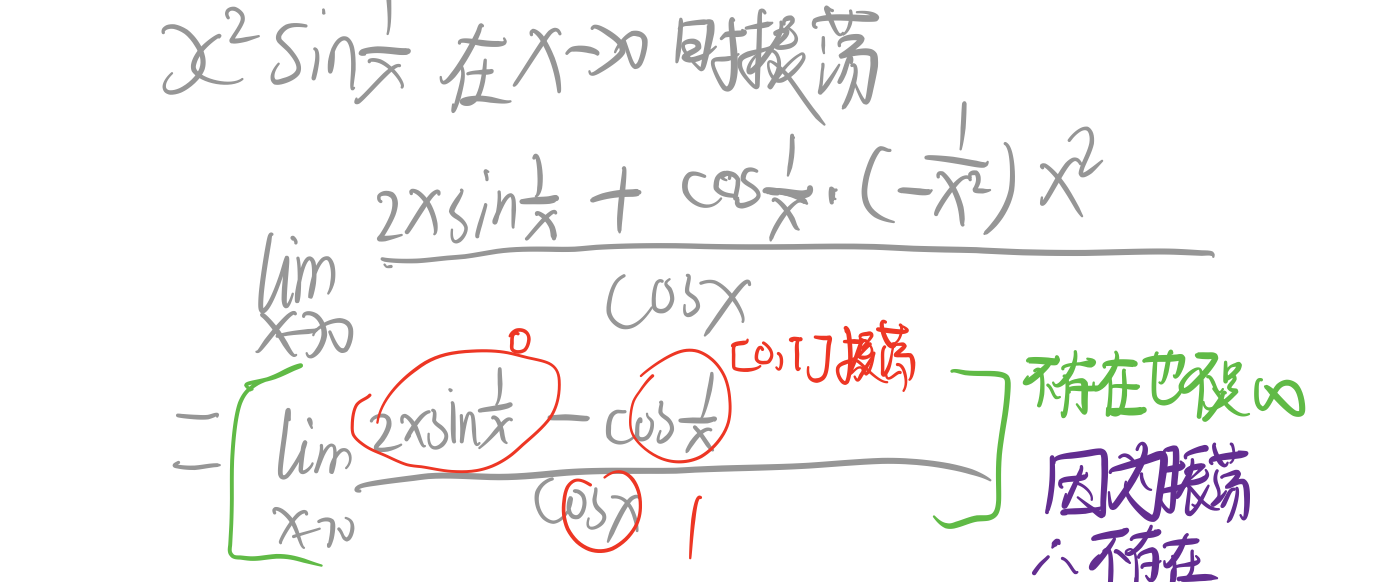 x² sin 1/x 在 x→∞ 时振荡
lim x→0 (2x sin 1/x + cos 1/x · (-1/x²) x²) / cos x
0
[0,1] 振荡
= lim x→0 (2x sin 1/x - cos 1/x) / cos x
1
不存在也不是 ∞
因为振荡
∴ 不存在